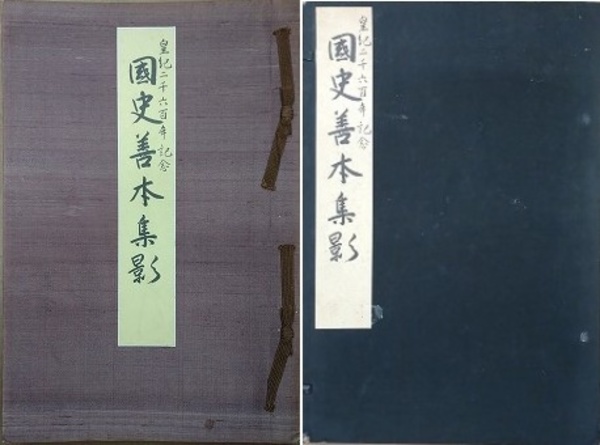 皇紀二千六百年記念
國史善本集影
皇紀二千六百年記念
國史善本集影